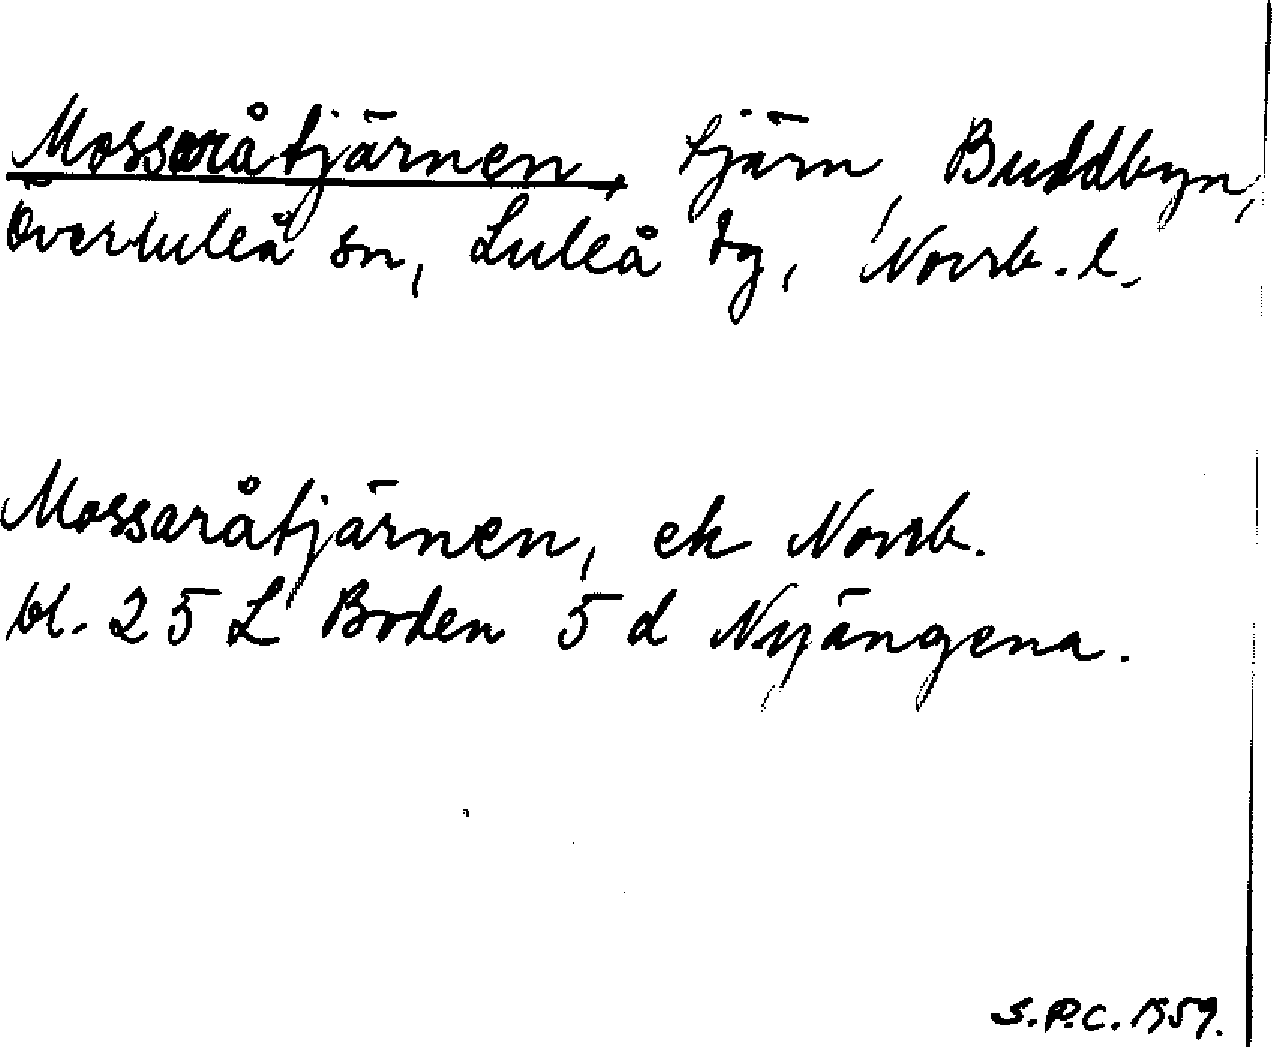 Mossaråtjärnen, tjärn, Buddbyn,
Överluleå sn, Luleå tg, Norrb. l.
Mossaråtjärnen, ek Norrb.
bl. 25 L Boden 5 d Nyängena.
S.P.C. 1959.